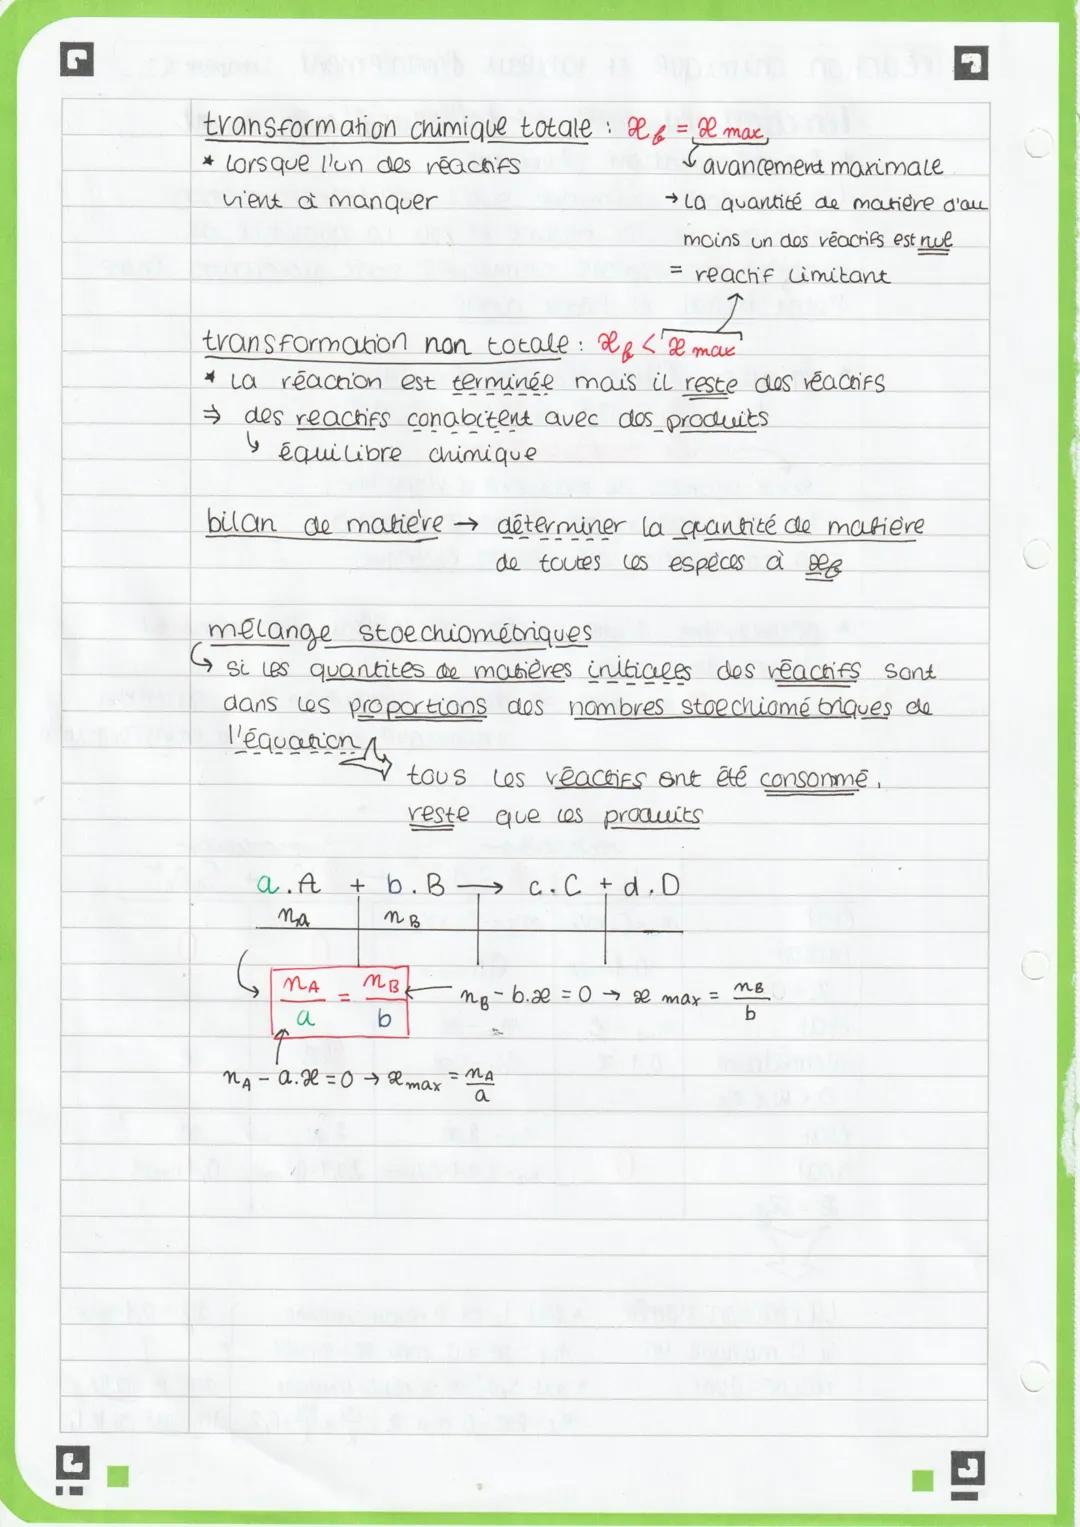 transformation chimique totale : x f = x max,
* Lorsque l'un des réactifs
vient à manquer
avancement maximale
→ La quantité de matière d'au
moins un des réactifs est nul
= reactif limitant
transformation non totale : x f < x max
* La réaction est terminée mais il reste des réactifs
⇒ des reactifs conabitent avec des produits
↳ équilibre chimique
bilan de matière → déterminer la quantité de matière
de toutes les espèces à xf
mélange stoechiométriques
↪ si les quantités de matières initiales des réactifs sont
dans les proportions des nombres stoechiométriques de
l'équation
tous les réactifs ont été consommé,
reste que les produits
a.A + b.B → c.C + d.D
nA nB
nA/a = nB/b ← nB - b.x = 0 → x max = nB/b
nA - a.x = 0 → x max = nA/a